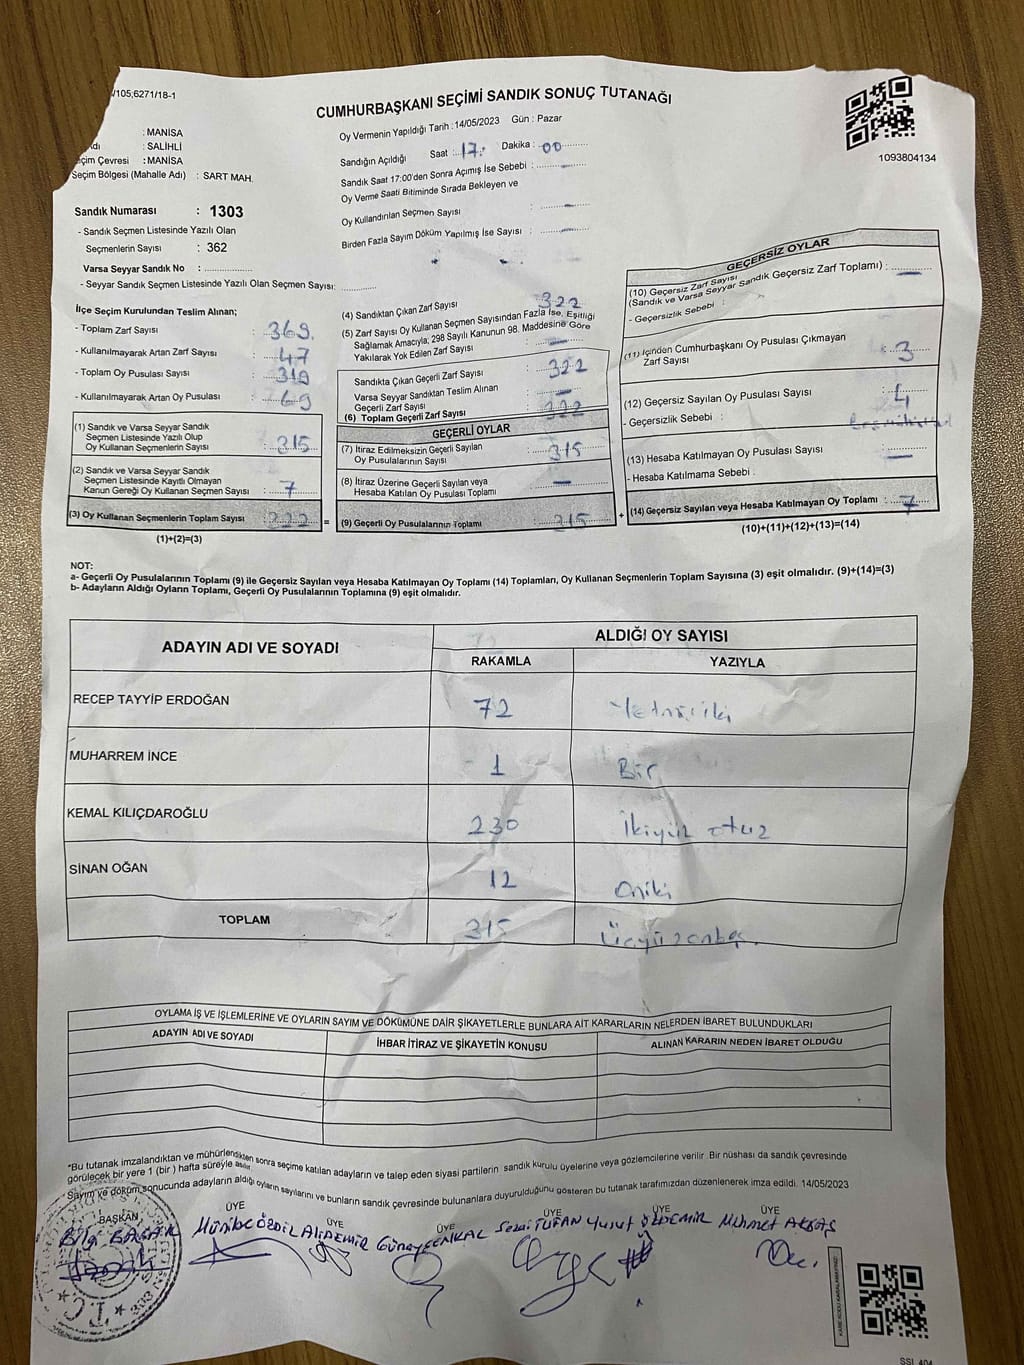 /105;6271/18-1
CUMHURBAŞKANI SEÇİMİ SANDIK SONUÇ TUTANAĞI
1093804134
: MANİSA
: SALİHLİ
çim Çevresi : MANİSA
Seçim Bölgesi (Mahalle Adı) : SART MAH.
Oy Vermenin Yapıldığı Tarih : 14/05/2023 Gün : Pazar
Sandığın Açıldığı Saat : 17: Dakika : 00
Sandık Saat 17:00'den Sonra Açımış İse Sebebi : —
Oy Verme Saati Bitiminde Sırada Bekleyen ve
Oy Kullandırılan Seçmen Sayısı : —
Birden Fazla Sayım Döküm Yapılmış İse Sayısı : —
Sandık Numarası : 1303
- Sandık Seçmen Listesinde Yazılı Olan
Seçmenlerin Sayısı : 362
Varsa Seyyar Sandık No :
- Seyyar Sandık Seçmen Listesinde Yazılı Olan Seçmen Sayısı:
İlçe Seçim Kurulundan Teslim Alınan;
- Toplam Zarf Sayısı : 369
- Kullanılmayarak Artan Zarf Sayısı : 47
- Toplam Oy Pusulası Sayısı :
- Kullanılmayarak Artan Oy Pusulası :
(1) Sandık ve Varsa Seyyar Sandık
Seçmen Listesinde Yazılı Olup
Oy Kullanan Seçmenlerin Sayısı : 315
(2) Sandık ve Varsa Seyyar Sandık
Seçmen Listesinde Kayıtlı Olmayan
Kanun Gereği Oy Kullanan Seçmen Sayısı : 7
(3) Oy Kullanan Seçmenlerin Toplam Sayısı : 322 =
(1)+(2)=(3)
(4) Sandıktan Çıkan Zarf Sayısı 322
(5) Zarf Sayısı Oy Kullanan Seçmen Sayısından Fazla İse, Eşitliği
Sağlamak Amacıyla, 298 Sayılı Kanunun 98. Maddesine Göre
Yakılarak Yok Edilen Zarf Sayısı : —
Sandıkta Çıkan Geçerli Zarf Sayısı : 322
Varsa Seyyar Sandıktan Teslim Alınan
Geçerli Zarf Sayısı : —
(6) Toplam Geçerli Zarf Sayısı : 322
GEÇERLİ OYLAR
(7) İtiraz Edilmeksizin Geçerli Sayılan
Oy Pusulalarının Sayısı : 315
(8) İtiraz Üzerine Geçerli Sayılan veya
Hesaba Katılan Oy Pusulası Toplamı : —
(9) Geçerli Oy Pusulalarının Toplamı : 315 +
GEÇERSİZ OYLAR
(10) Geçersiz Zarf Sayısı
(Sandık ve Varsa Seyyar Sandık Geçersiz Zarf Toplamı) : —
- Geçersizlik Sebebi :
(11) İçinden Cumhurbaşkanı Oy Pusulası Çıkmayan
Zarf Sayısı : 3
(12) Geçersiz Sayılan Oy Pusulası Sayısı : 4
- Geçersizlik Sebebi :
(13) Hesaba Katılmayan Oy Pusulası Sayısı : —
- Hesaba Katılmama Sebebi :
(14) Geçersiz Sayılan veya Hesaba Katılmayan Oy Toplamı : 7
(10)+(11)+(12)+(13)=(14)
NOT:
a- Geçerli Oy Pusulalarının Toplamı (9) ile Geçersiz Sayılan veya Hesaba Katılmayan Oy Toplamı (14) Toplamları, Oy Kullanan Seçmenlerin Toplam Sayısına (3) eşit olmalıdır. (9)+(14)=(3)
b- Adayların Aldığı Oyların Toplamı, Geçerli Oy Pusulalarının Toplamına (9) eşit olmalıdır.
ADAYIN ADI VE SOYADI ALDIĞI OY SAYISI
RAKAMLA YAZIYLA
RECEP TAYYİP ERDOĞAN 72 Yetmişiki
MUHARREM İNCE 1 Bir
KEMAL KILIÇDAROĞLU 230 İkiyüz otuz
SİNAN OĞAN 12 Oniki
TOPLAM 315 Üçyüzonbeş.
OYLAMA İŞ VE İŞLEMLERİNE VE OYLARIN SAYIM VE DÖKÜMÜNE DAİR ŞİKAYETLERLE BUNLARA AİT KARARLARIN NELERDEN İBARET BULUNDUKLARI
ADAYIN ADI VE SOYADI İHBAR İTİRAZ VE ŞİKAYETİN KONUSU ALINAN KARARIN NEDEN İBARET OLDUĞU
*Bu tutanak imzalandıktan ve mühürlendikten sonra seçime katılan adayların ve talep eden siyasi partilerin sandık kurulu üyelerine veya gözlemcilerine verilir. Bir nüshası da sandık çevresinde
görülecek bir yere 1 (bir ) hafta süreyle asılır.
Sayım ve döküm sonucunda adayların aldığı oyların sayılarını ve bunların sandık çevresinde bulunanlara duyurulduğunu gösteren bu tutanak tarafımızdan düzenlenerek imza edildi. 14/05/2023
BAŞKAN ÜYE ÜYE ÜYE ÜYE ÜYE ÜYE
Bilgi BAŞAK Münibe ÖZDİL Ali DEMİR Günay CENKAL Sezai TUFAN Yusuf ÖZDEMİR Mehmet AKBAŞ
T.C.
303
KARE KODU KARALAMAYINIZ!
SSL 404